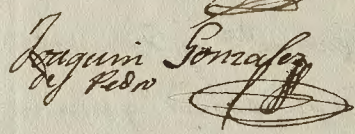 Joaquin Gonzalez
de Pedro